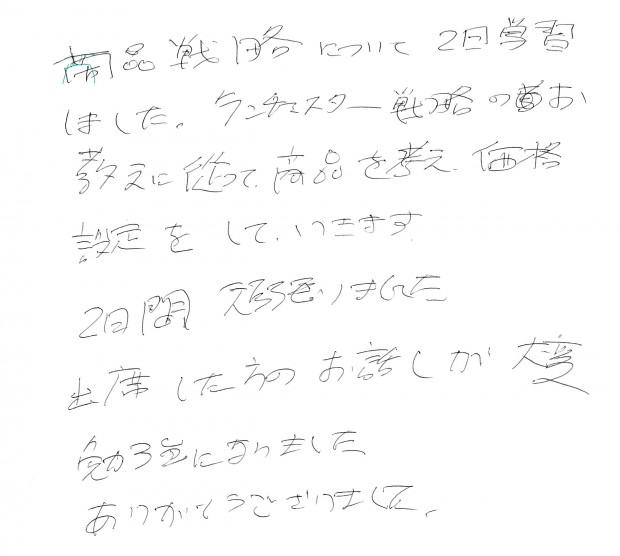 商品戦略について2日学習
しました。ランチェスター戦略のお
教えに従って、商品を考え、価格
設定をして、いきます
2日間 頑張りました
出席した方のお話しが大変
勉強になりました
ありがとうございました。